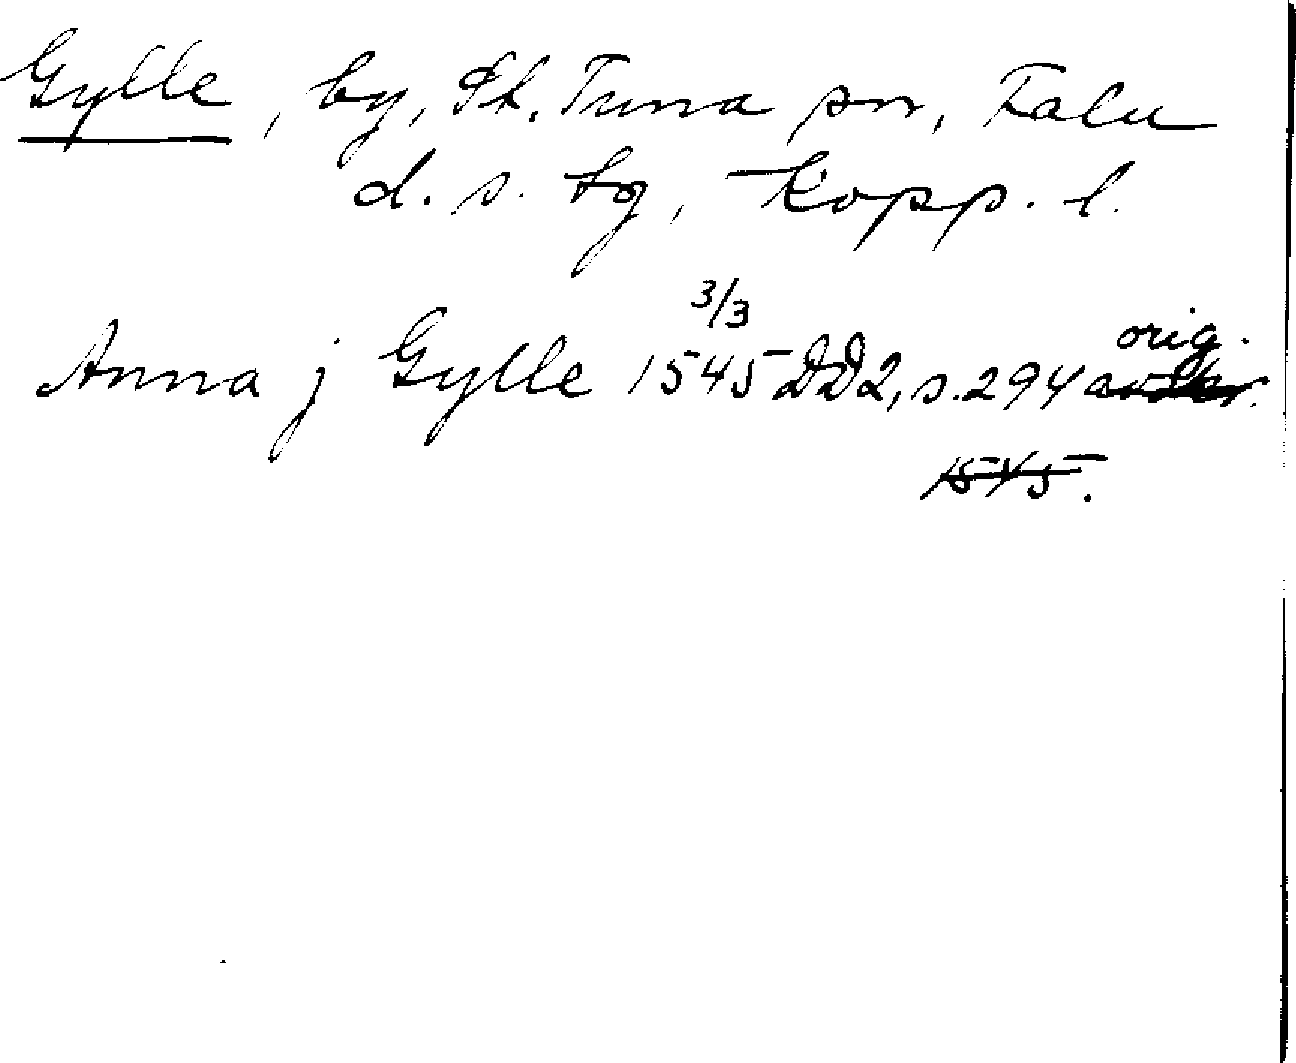 Gylle, by, St. Tuna sn, Falu
d. s. tg, Kopp. l.
3/3
Anna j Gylle 1545 DD2, s. 294 orig.
1545.